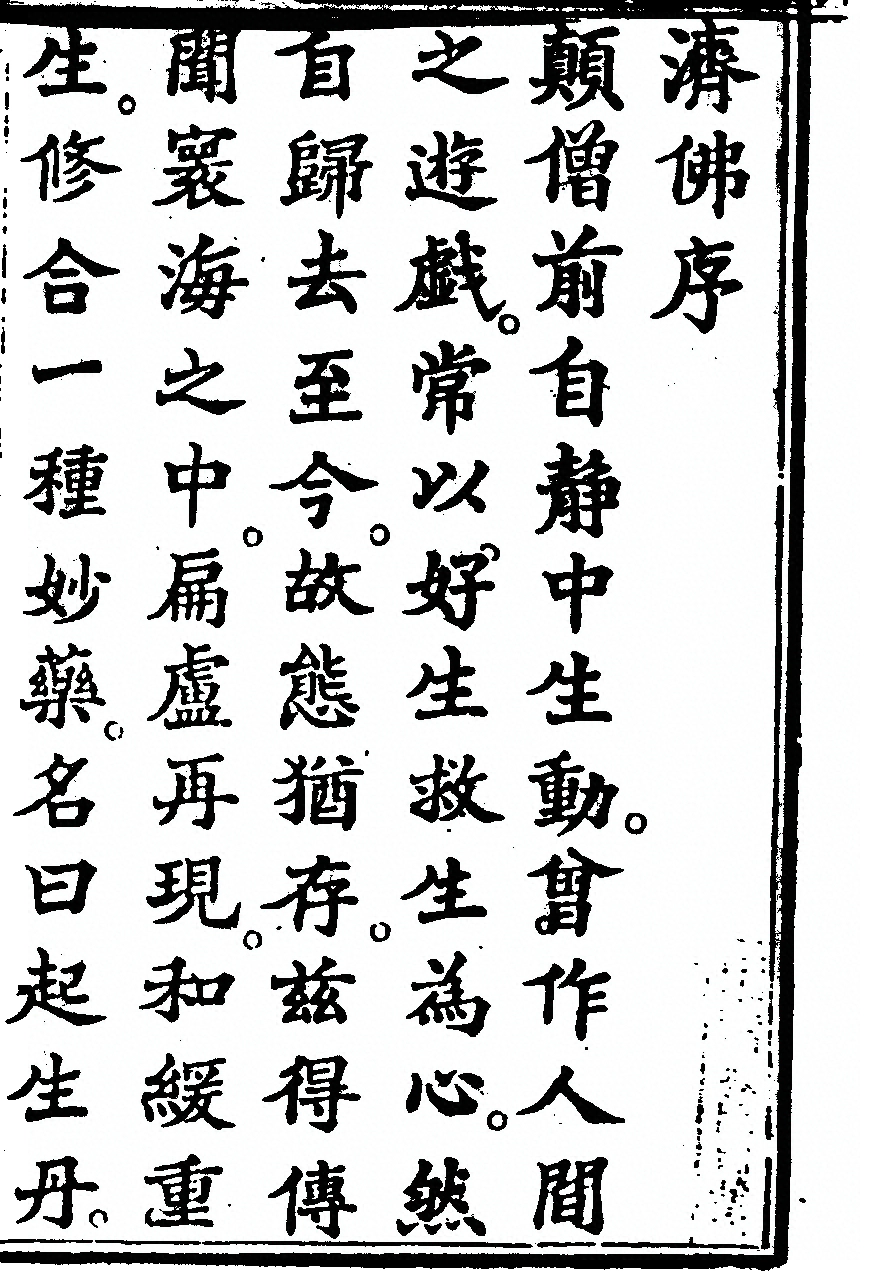 濟佛序
顛僧前自靜中生動。曾作人間
之遊戲。常以好生救生為心。然
自歸去至今。故態猶存。茲得傳
聞寰海之中。扁盧再現。和緩重
生。修合一種妙藥。名曰起生丹。